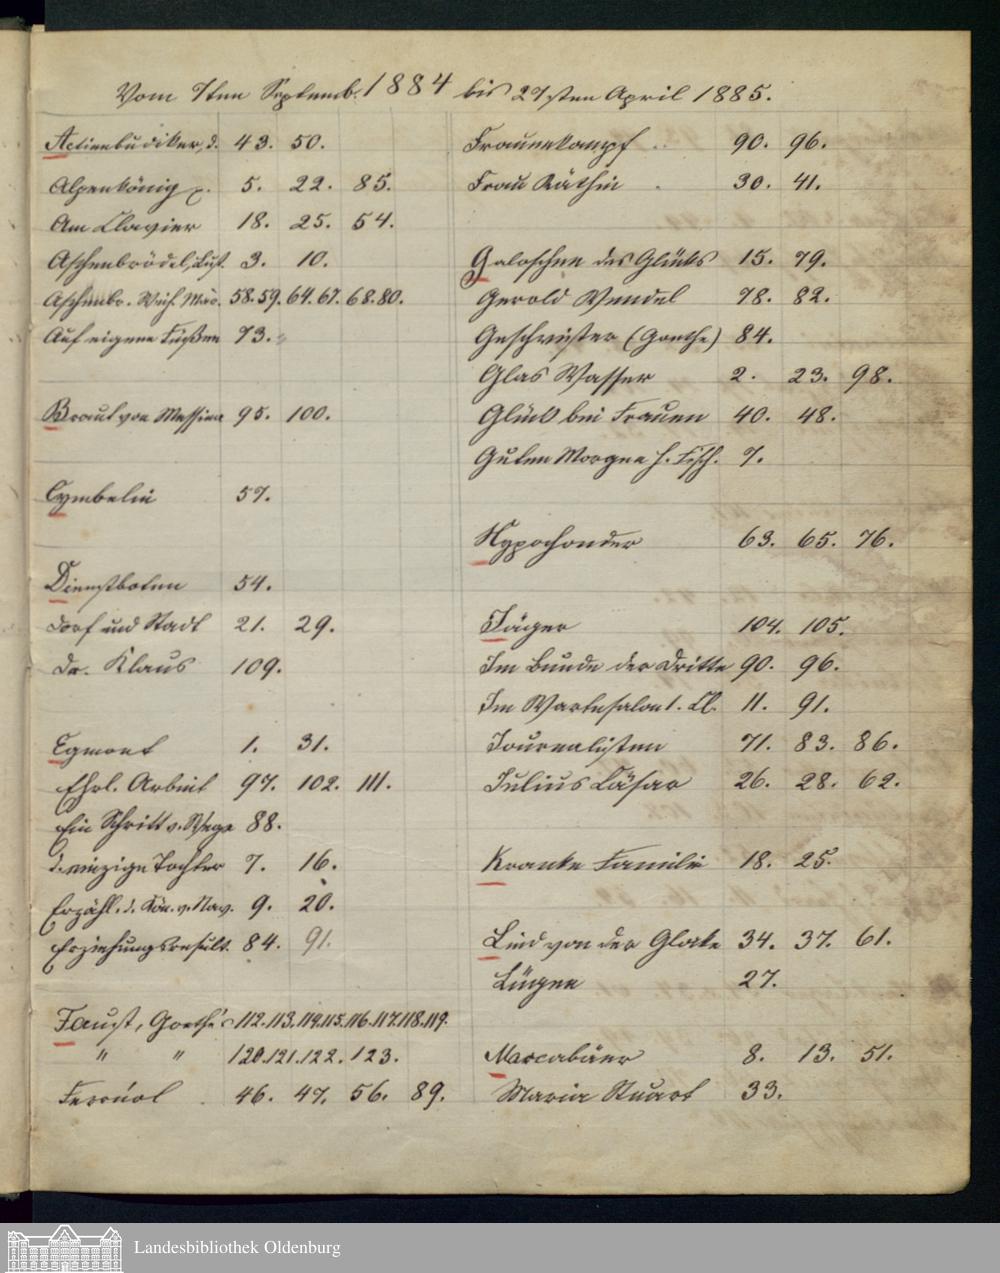 Vom 7ten Septemb. 1884 bis 27sten April 1885.
Actienbudiker, d. 43. 50.
Alpenkönig 5. 22. 85.
Am Clavier 18. 25. 54.
Aschenbrödel, Lust. 3. 10.
Aschenbr. Weih. Mär. 58. 59. 64. 67. 68. 80.
Auf eigene Füßen 73.
Braut von Messina 95. 100.
Cymbelin 57.
Dienstboten 54.
Dorf und Stadt 21. 29.
Dr. Klaus 109.
Egmont 1. 31.
Ehrl. Arbeit 97. 102. 111.
Ein Schritt v. Wege 88.
d. einzige Tochter 7. 16.
Erzähl. d. Kön. v. Nav. 9. 20.
Erziehungsresult. 84. 91.
Faust, Goethe's 112. 113. 114. 115. 116. 117. 118. 119.
" " 120. 121. 122. 123.
Fernöol 46. 47. 56. 89.
Frauenkampf 90. 96.
Frau Käthin 30. 41.
Galoschen des Glücks 15. 79.
Gerold Wendel 78. 82.
Geschwister (Goethe) 84.
Glas Wasser 2. 23. 98.
Glück bei Frauen 40. 48.
Guten Morgen H. Fisch. 7.
Hypochonder 63. 65. 76.
Jäger 104. 105.
Im Bunde der Dritte 90. 96.
Im Wartesalon 1. Cl. 11. 91.
Journalisten 71. 83. 86.
Julius Cäsar 26. 28. 62.
Kranke Familie 18. 25.
Lied von der Glocke 34. 37. 61.
Lügen 27.
Maccabäer 8. 13. 51.
Maria Stuart 33.
Landesbibliothek Oldenburg